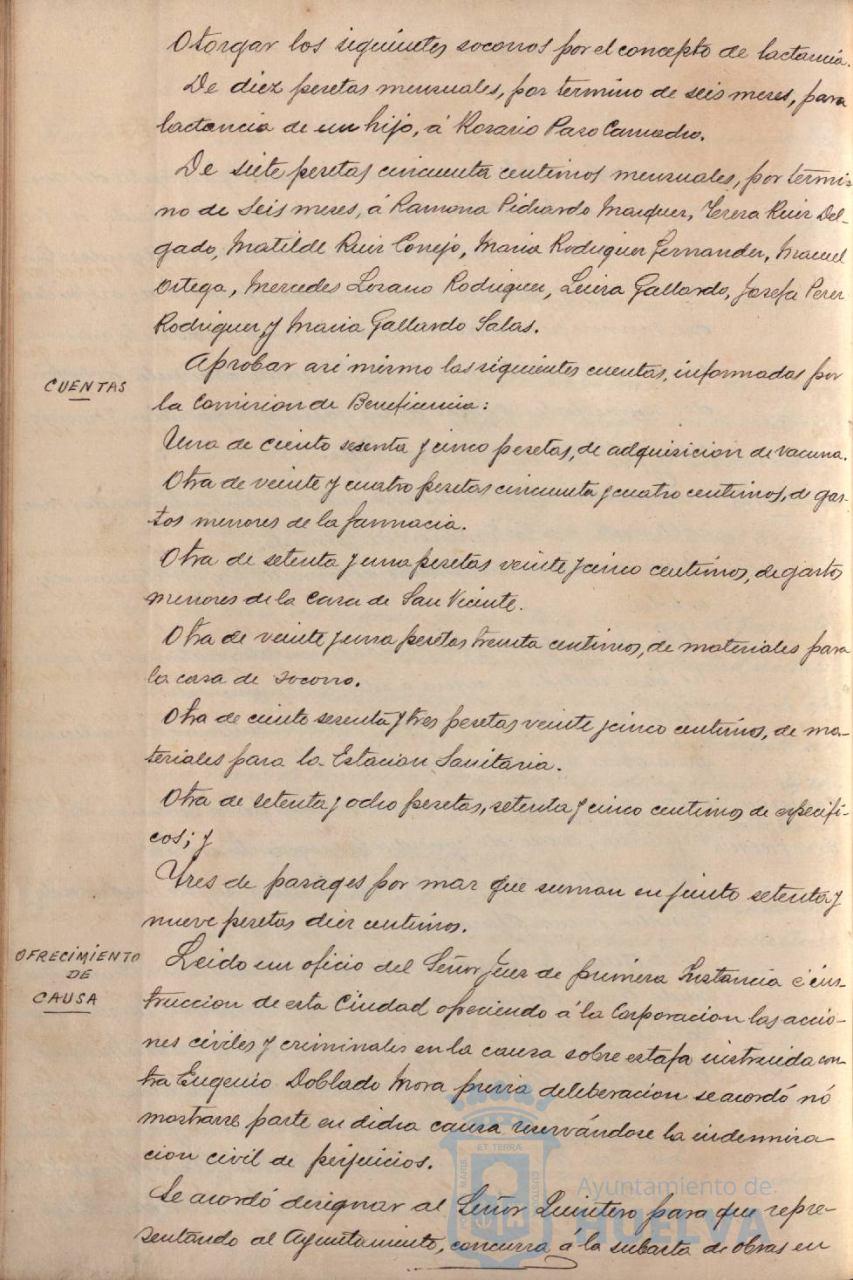 Otorgar los siguientes socorros por el concepto de lactancia.
De diez pesetas mensuales, por termino de seis meses, para
lactancia de un hijo, á Rosario Paso Camacho.
De siete pesetas cincuenta centimos mensuales, por termi-
no de seis meses, á Ramona Pichardo Marquez, Teresa Ruiz Del-
gado, Matilde Ruiz Conejo, Maria Rodriguez Fernandez, Manuel
Ortega, Mercedes Lozano Rodriguez, Luisa Gallardo, Josefa Perez
Rodriguez, y Maria Gallardo Salas.
CUENTAS
Aprobar asi mismo las siguientes cuentas, informadas por
la Comision de Beneficencia:
Una de ciento sesenta y cinco pesetas, de adquisicion de vacuna.
Otra de veinte y cuatro pesetas cincuenta y cuatro centimos, de gas-
tos menores de la farmacia.
Otra de setenta y una pesetas veinte y cinco centimos, de gastos
menores de la Casa de San Vicente.
Otra de veinte y una pesetas treinta centimos, de materiales para
la casa de socorro.
Otra de ciento sesenta y tres pesetas veinte y cinco centimos, de ma-
teriales para la Estacion Sanitaria.
Otra de setenta y ocho pesetas, setenta y cinco centimos de especifi-
cos; y
Tres de pasages por mar que suman en junto setenta y
nueve pesetas diez centimos.
OFRECIMIENTO
DE
CAUSA
Leido un oficio del Señor Juez de primera Instancia é ins-
truccion de esta Ciudad ofreciendo á la Corporacion las accio-
nes civiles y criminales en la causa sobre estafa instruida con-
tra Eugenio Doblado Mora previa deliberacion se acordó nó
mostrarse parte en dicha causa reservándose la indemniza-
cion civil de perjuicios.
Se acordó designar al Señor Quintero para que repre-
sentando al Ayuntamiento, concurra á la subasta de obras en
PORTUS MARIS ET TERRAE CUSTODIA
Ayuntamiento de
HUELVA